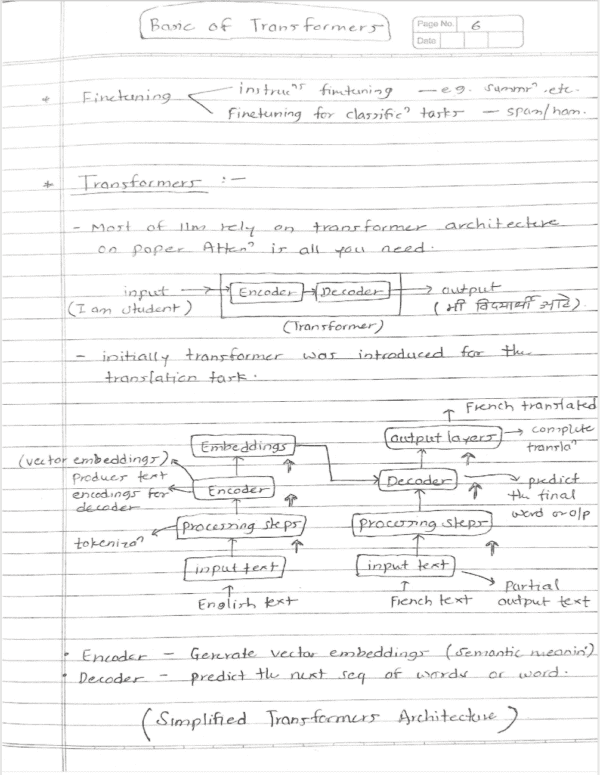 Basic of Transformers
Page No. 6
Date
* Finetuning
instrucⁿˢ finetuning — e.g. summrⁿ. etc.
Finetuning for classificⁿ tasks — spam/ham.
* Transformers :-
- Most of llm rely on transformer architecture
on paper Attenⁿ is all you need.
input → Encoder → Decoder → output
(I am student) (मी विद्यार्थी आहे).
(Transformer)
- initially transformer was introduced for the
translation task.
French translated
Embeddings
output layers → complete
translaⁿ
(vector embeddings)
Produces text
encodings for
decoder
Encoder
Decoder → predict
the final
word or o/p
Processing steps
Processing steps
tokenizaⁿ
input text
input text
English text
French text
Partial
output text
• Encoder — Generate vector embeddings (semantic meaninⁿ)
• Decoder - predict the next seq of words or word.
(Simplified Transformers Architecture)